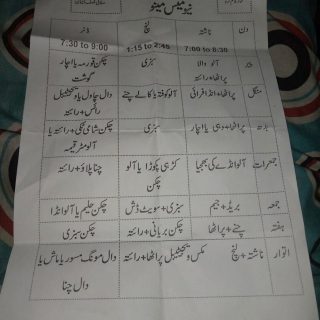 نیو میس مینو
دن ناشتہ لنچ ڈنر
7:00 to 8:30 1:15 to 2:45 7:30 to 9:00
پیر آلو والا پراٹھا+رائتہ سبزی چکن قورمہ یا اچار گوشت
منگل پراٹھا+انڈا فرائی آلو کوفتہ یا کالے چنے دال چاول یا ویجیٹیبل رائس+رائتہ
بدھ پراٹھا+دہی یا اچار سبزی چکن شامی ٹکی+رائتہ یا آلو مٹر قیمہ
جمعرات آلو انڈے کی بھجیا کڑہی پکوڑا یا آلو چکن چنا پلاؤ+رائتہ
جمعہ بریڈ+جیم سبزی+سویٹ ڈش چکن حلیم یا آلو انڈا
ہفتہ چنے+پراٹھا چکن بریانی+رائتہ چکن سبزی
اتوار ناشتہ+لنچ مکس ویجیٹیبل پراٹھا+رائتہ دال مونگ مسور یا ماش یا دال چنا